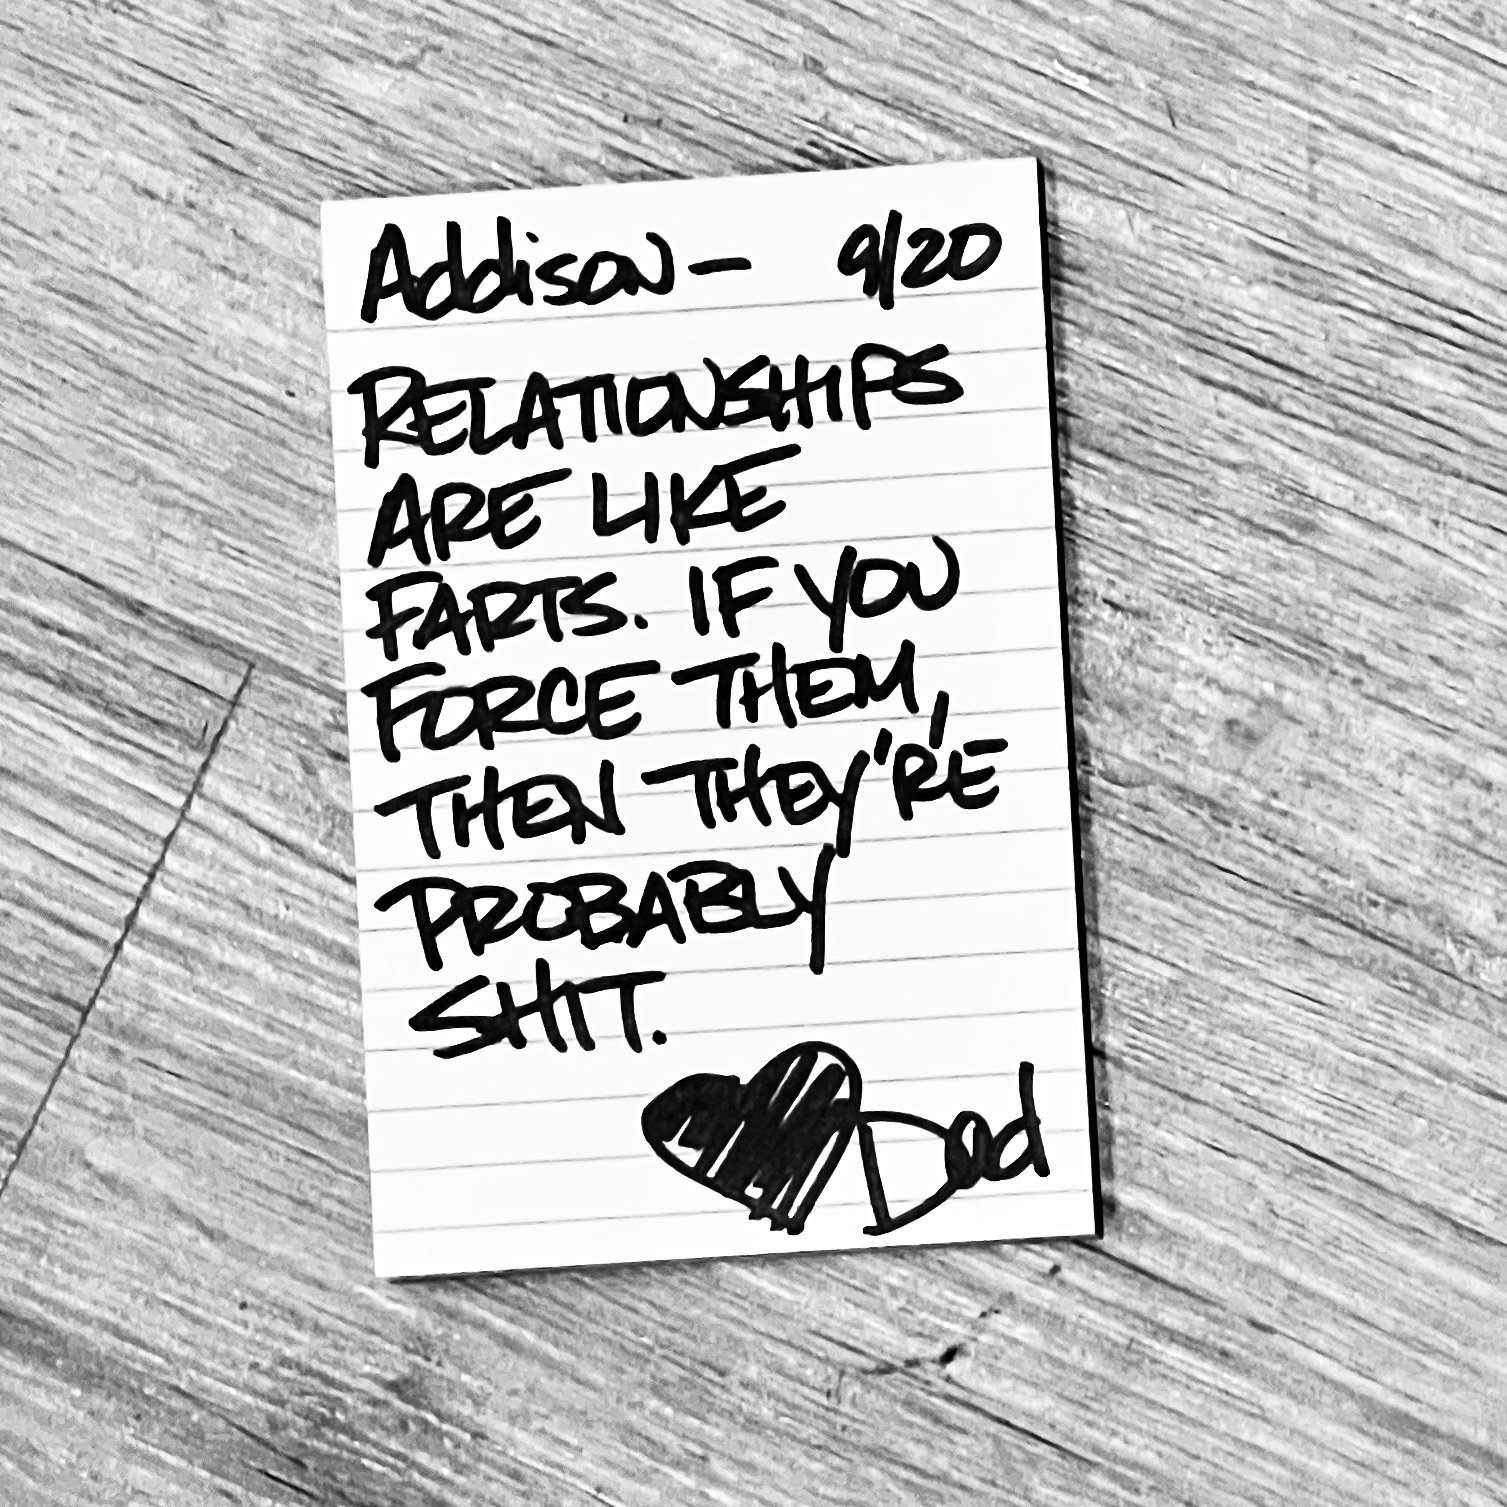 Addison— 9/20
RELATIONSHIPS
ARE LIKE
FARTS. IF YOU
FORCE THEM,
THEN THEY'RE
PROBABLY
SHIT.
Dad